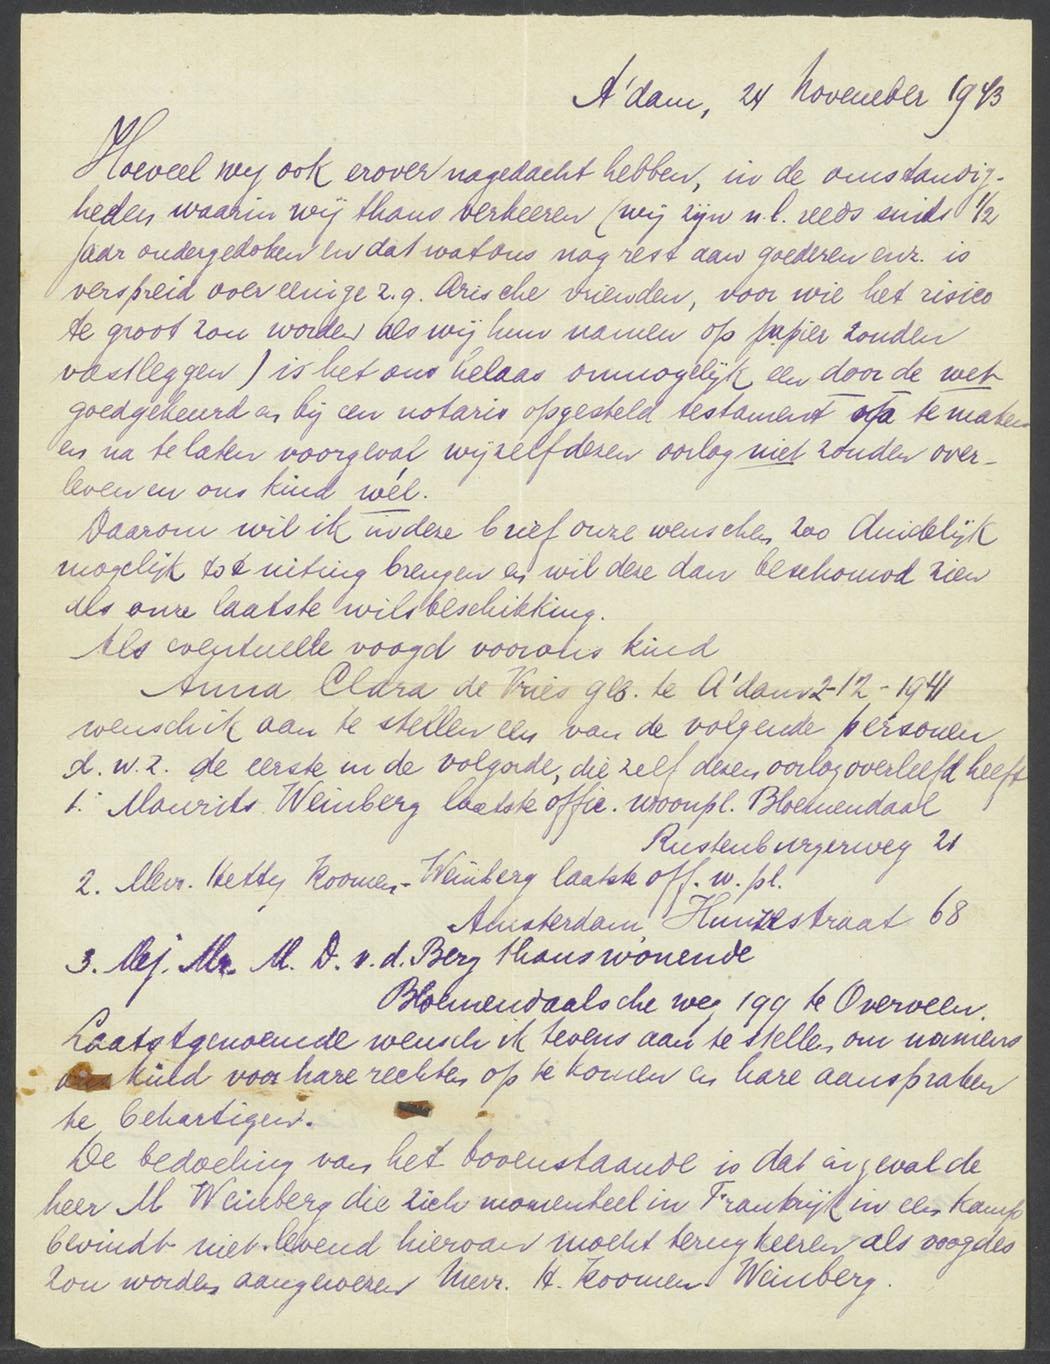 A'dam, 24 November 1943
Hoeveel wij ook erover nagedacht hebben, in de omstandig-
heden waarin wij thans verkeeren (wij zijn n.l. reeds sinds 1/2
jaar ondergedoken en dat wat ons nog rest aan goederen enz. is
verspreid over eenige z.g. Arische vrienden, voor wie het risico
te groot zou worden als wij hun namen op papier zouden
vastleggen) is het ons helaas onmogelijk een door de wet
goedgekeurd en bij een notaris opgesteld testament te maken
en na te laten voorgeval wijzelf dezen oorlog niet zouden over-
leven en ons kind wél.
Daarom wil ik in deze brief onze wenschen zoo duidelijk
mogelijk tot uiting brengen en wil deze dan beschouwd zien
als onze laatste wilsbeschikking.
Als eventuelle voogd voor ons kind
Anna Clara de Vries geb. te A'dam 2-12-1941
wensch ik aan te stellen een van de volgende personen
d.w.z. de eerste in de volgorde, die zelf dezen oorlog overleefd heeft
1. Maurits Weinberg laatste offic. woonpl. Bloemendaal
Rustenburgerweg 21
2. Mevr. Hetty Koomen-Weinberg laatste off. w. pl.
Amsterdam Hunzestraat 68
3. Mej. Mr. M. D. v. d. Berg thans wonende
Bloemendaalsche weg 199 te Overveen.
Laatstgenoemde wensch ik tevens aan te stellen om namens
ons kind voor hare rechten op te komen en hare aanspraken
te behartigen.
De bedoeling van het bovenstaande is dat in geval de
heer M Weinberg die zich momenteel in Frankrijk in een kamp
bevindt niet levend hiervan mocht terugkeeren als voogdes
zou worden aangewezen Mevr. H. Koomen-Weinberg.